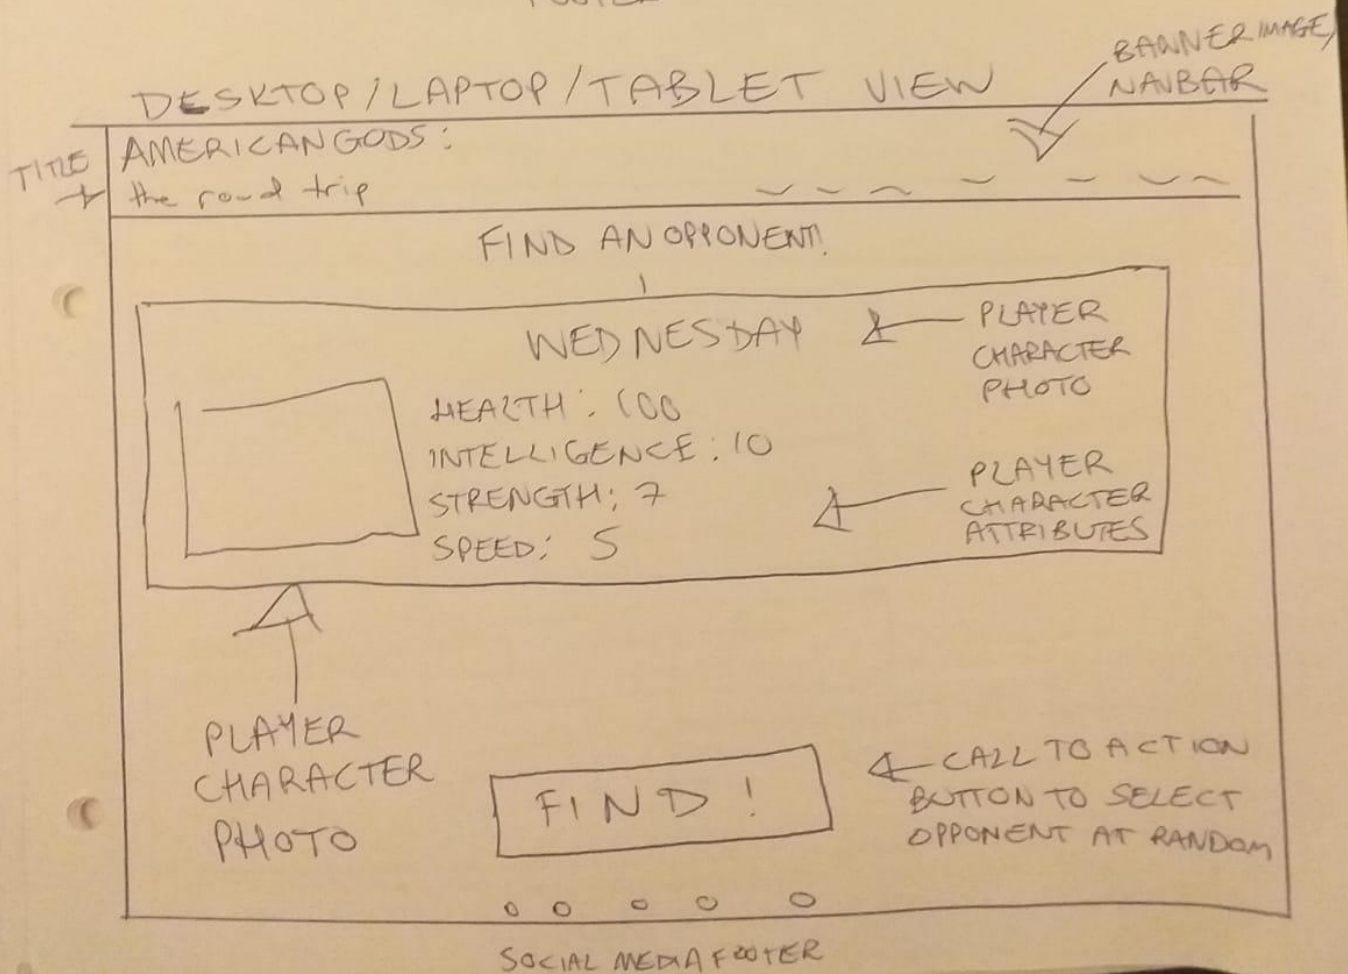 DESKTOP/LAPTOP/TABLET VIEW
BANNER IMAGE/
NAVBAR
TITLE
AMERICAN GODS:
the road trip
FIND AN OPPONENT!
WEDNESDAY
PLAYER
CHARACTER
PHOTO
HEALTH: 100
INTELLIGENCE: 10
STRENGTH: 7
SPEED: 5
PLAYER
CHARACTER
ATTRIBUTES
PLAYER
CHARACTER
PHOTO
FIND!
CALL TO ACTION
BUTTON TO SELECT
OPPONENT AT RANDOM
SOCIAL MEDIA FOOTER